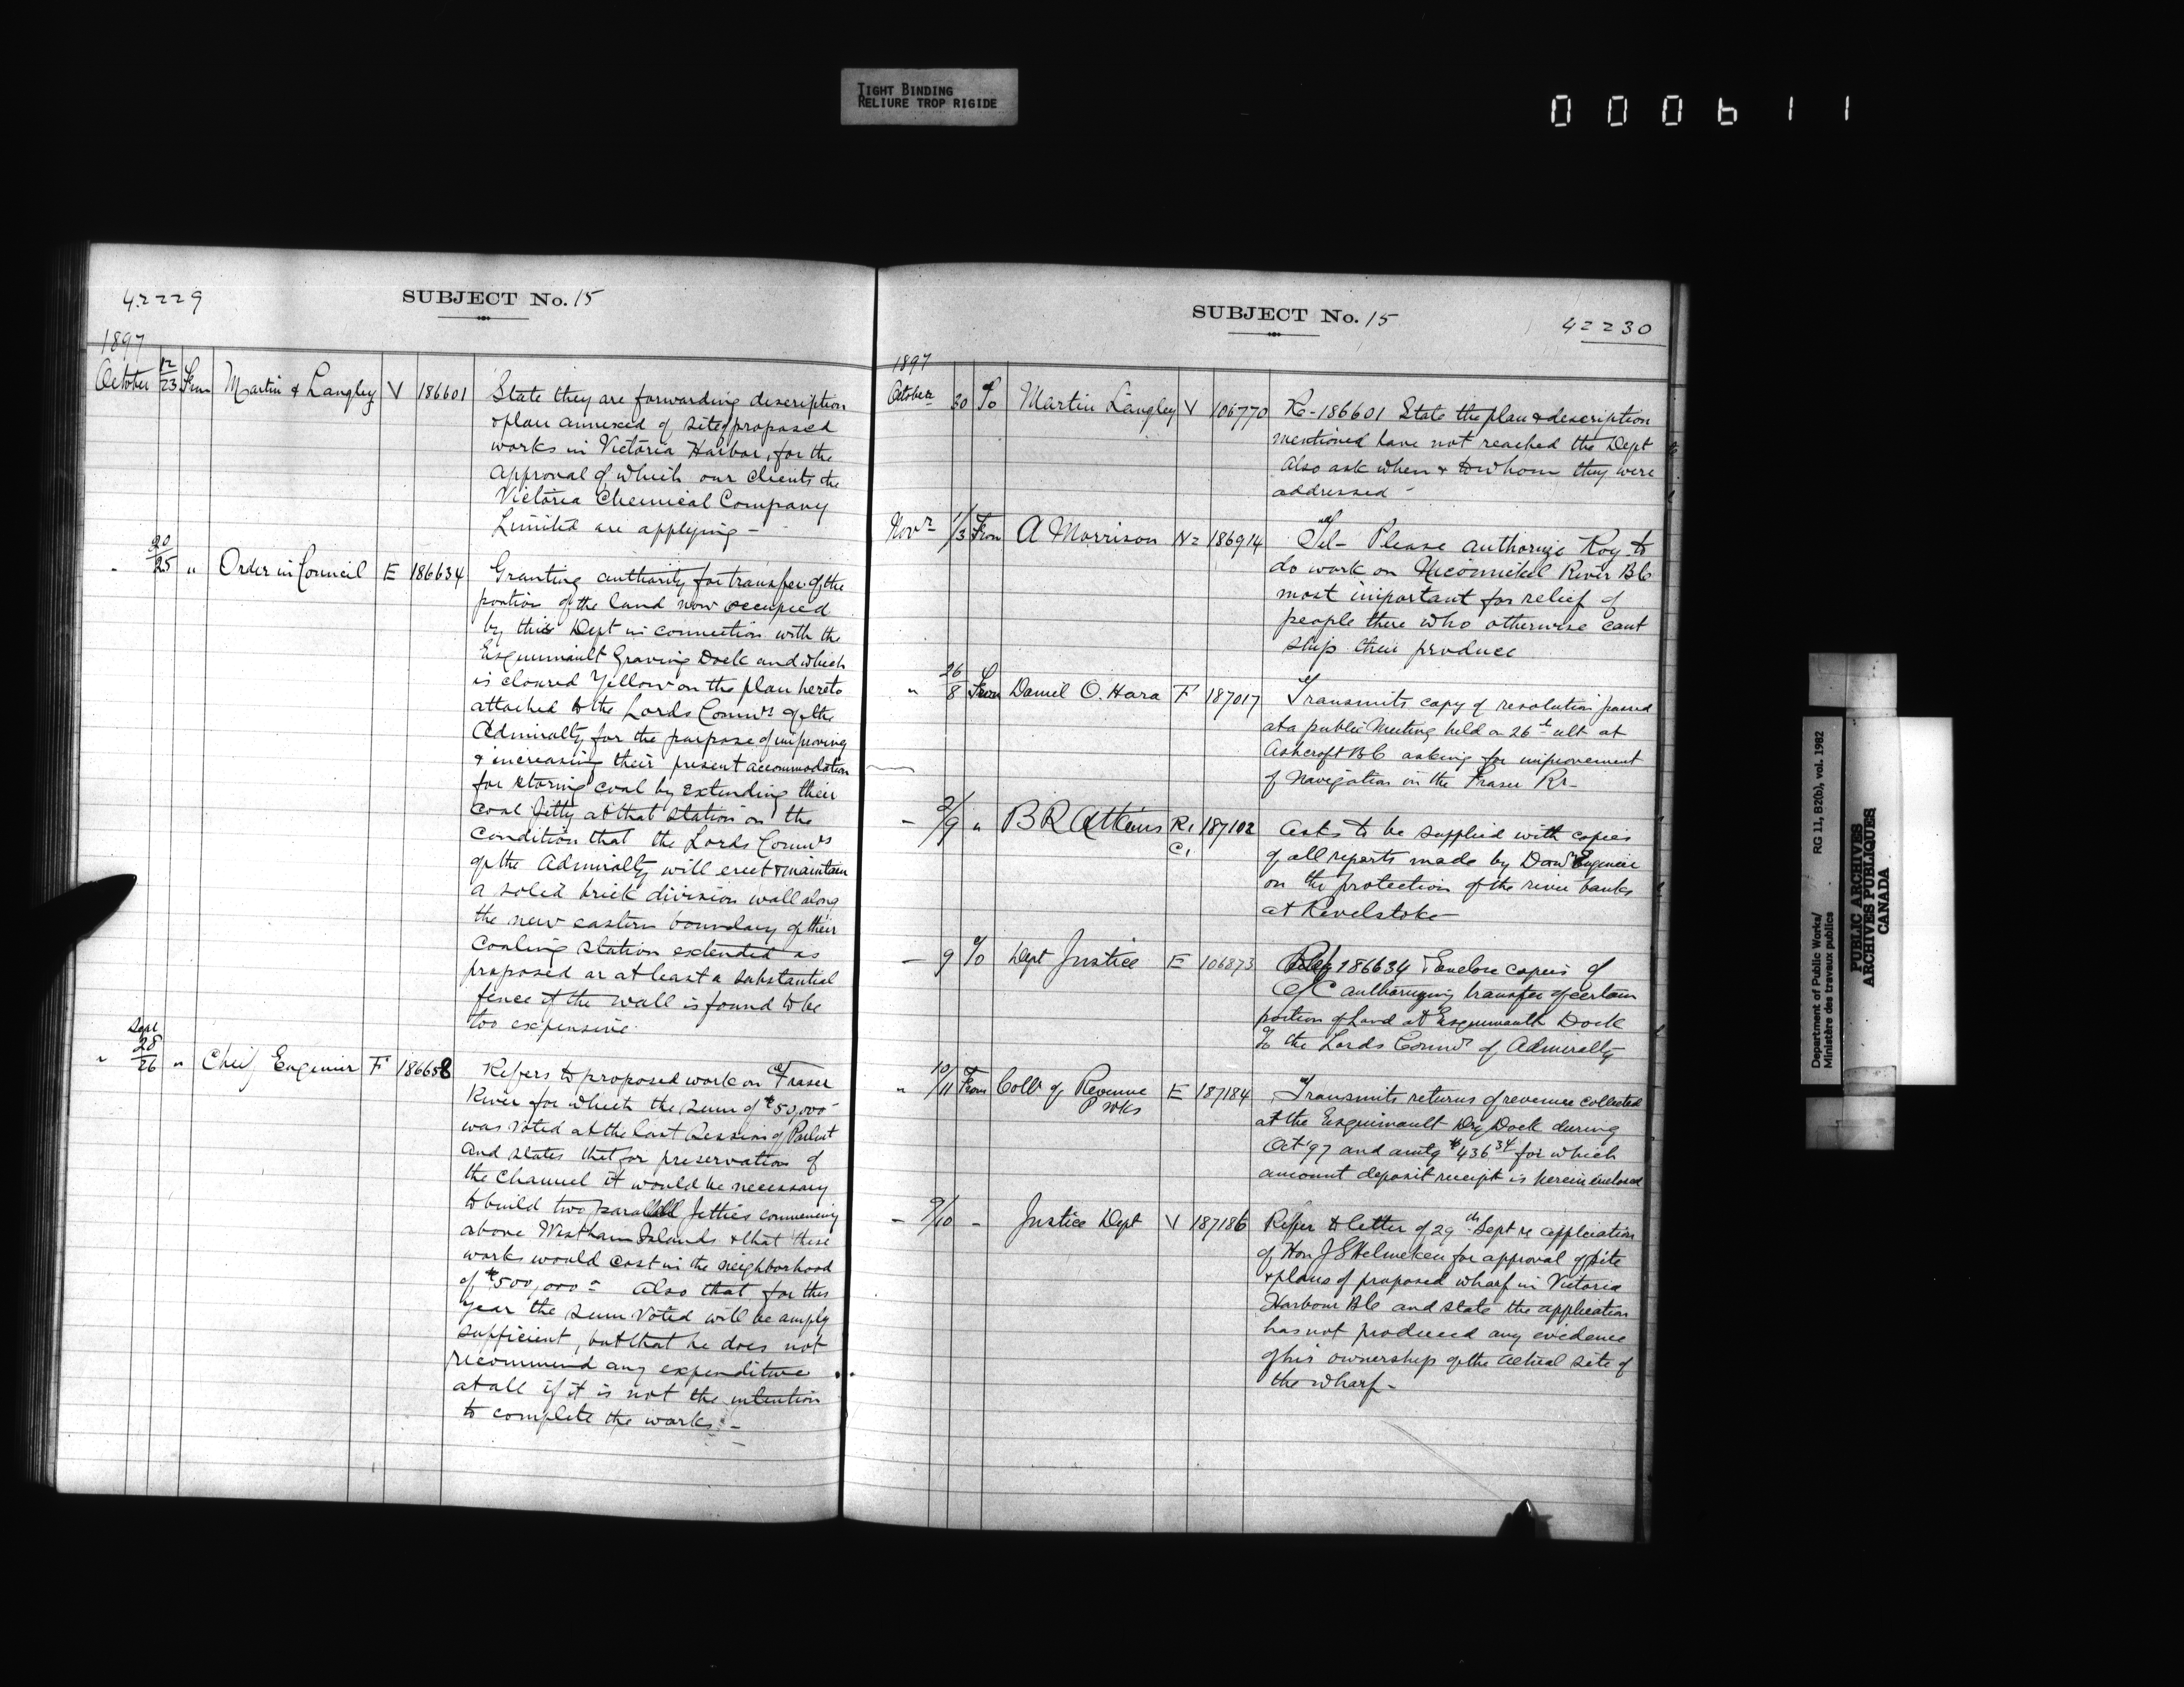 TIGHT BINDING
RELIURE TROP RIGIDE
000611
42229
SUBJECT No. 15
1897
October 12/23 From Martin & Langley V 186601 State they are forwarding description
& plan annexed of site of proposed
works in Victoria Harbor, for the
approval of which our clients the
Victoria Chemical Company
Limited are applying -
" 20/25 " Order in Council E 186634 Granting authority for transfer of the
portion of the land now occupied
by this Dept in connection with the
Esquimault Graving Dock and which
is cloured Yellow on the plan hereto
attached to the Lords Commrs of the
Admiralty for the purpose of improving
& increasing their present accommodation
for storing coal by extending their
coal Jetty at that Station on the
condition that the Lords Commrs
of the Admiralty will erect & maintain
a solid brick division wall along
the new eastern boundary of their
Coaling Station extended as
proposed or at least a substantial
fence if the wall is found to be
too expensive.
" Sept 28/26 " Chief Engineer F 186658 Refers to proposed work on Fraser
River for which the sum of $50,000
was voted at the last Session of Parlmt
and states that for preservation of
the Channel it would be necessary
to build two parallell Jetties commencing
above Westham Islands & that these
works would cost in the neighborhood
of $500,000 - Also that for this
year the sum voted will be amply
sufficient, but that he does not
recommend any expenditure
at all if it is not the intention
to complete the works. -
SUBJECT No. 15
42230
1897
October 30 To Martin Langley V 106770 Re - 186601 State the plan & description
mentioned have not reached the Dept
Also ask when & to whom they were
addressed -
Novr 1/3 From A Morrison N2 186914 Tel - Please authorize Roy to
do work on River BC
most important for relief of
people there who otherwise cant
ship their produce
" 26/8 From Daniel O. Hara F 187017 Transmits copy of resolution passed
at a public Meeting held on 26th ult at
Ashcroft BC asking for improvement
of Navigation in the Fraser Rr -
- 2/9 " B R Atkins R1 187102 Asks to be supplied with copies
C1 of all reports made by Domn Engineer
on the protection of the river banks
at Revelstoke
- 9 To Dept Justice E 106873 Refg 186634 & Enclose copies of
O/C authorizing transfer of certain
portion of Land at Esquimault Dock
To the Lords Commrs of Admiralty
" 10/11 From Collr of Revenue E 187184 Transmits returns of revenue collected
P Wks at the Esquimault Dry Dock during
Oct '97 and amtg $436.34 for which
amount deposit receipt is herein enclosed
- 9/10 - Justice Dept V 187186 Refer to letter of 29th Sept re application
of Hon J S Helmeken for approval of site
& plans of proposed wharf in Victoria
Harbour BC and state the application
has not produced any evidence
of his ownership of the actual site of
the wharf -
Department of Public Works/
Ministère des travaux publics
RG 11, B2(b), vol. 1982
PUBLIC ARCHIVES
ARCHIVES PUBLIQUES
CANADA